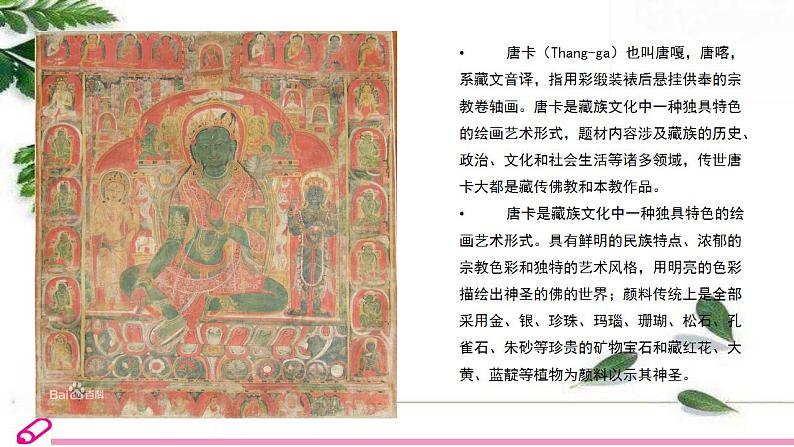 • 唐卡（Thang-ga）也叫唐嘎，唐喀，
系藏文音译，指用彩缎装裱后悬挂供奉的宗
教卷轴画。唐卡是藏族文化中一种独具特色
的绘画艺术形式，题材内容涉及藏族的历史、
政治、文化和社会生活等诸多领域，传世唐
卡大都是藏传佛教和本教作品。
• 唐卡是藏族文化中一种独具特色的绘
画艺术形式。具有鲜明的民族特点、浓郁的
宗教色彩和独特的艺术风格，用明亮的色彩
描绘出神圣的佛的世界；颜料传统上是全部
采用金、银、珍珠、玛瑙、珊瑚、松石、孔
雀石、朱砂等珍贵的矿物宝石和藏红花、大
黄、蓝靛等植物为颜料以示其神圣。
Bai百科